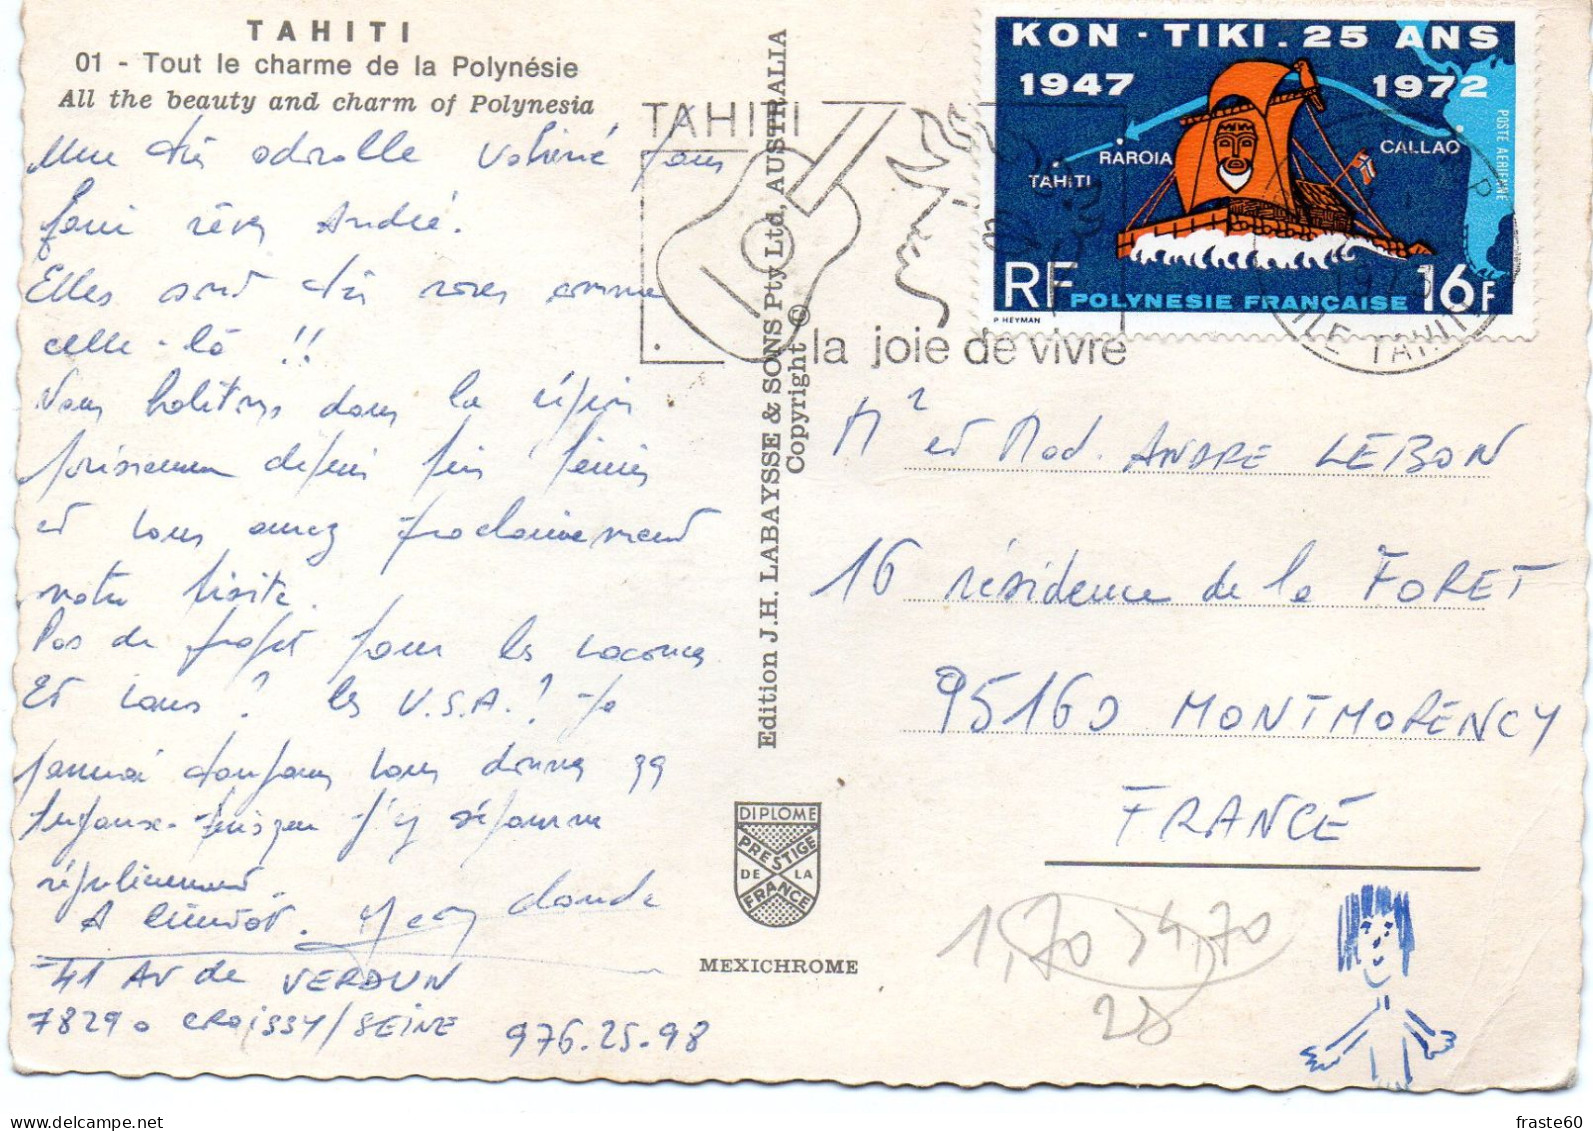 TAHITI
01 - Tout le charme de la Polynésie
All the beauty and charm of Polynesia
Une très adorable Vahiné pour
faire rêver André.
Elles sont très rares comme
celle-là !!
Nous habitons dans la région
parisienne depuis fin février
et vous aurez prochainement
notre visite.
Pas de projet pour les vacances
Et vous ? les U.S.A. ? Je
pourrai toujours vous donner
puisque j'y séjourne
régulièrement.
A bientôt. Jean Claude
41 AV de VERDUN
78290 CROISSY/SEINE 976.25.98
Edition J.H. LABAYSSE & SONS Pty Ltd, AUSTRALIA
Copyright ©
DIPLOME
PRESTIGE
DE LA
FRANCE
MEXICHROME
TAHITI
la joie de vivre
KON-TIKI. 25 ANS
1947 1972
POSTE AERIENNE
RAROIA
CALLAO
TAHITI
RF POLYNESIE FRANÇAISE 16F
P HEYMAN
ILE TAHITI
Mr et Mad. ANDRE LEBON
16 résidence de la FORET
95160 MONTMORENCY
FRANCE
1,70 34,70
28
fraste60